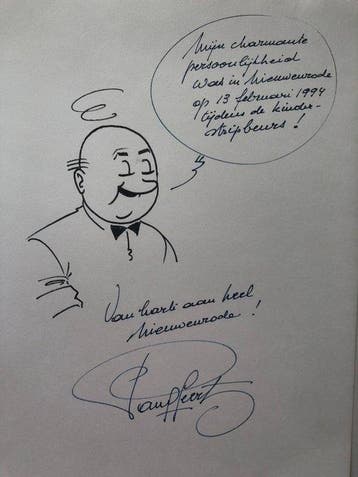 Mijn charmante
persoonlijkheid
was in Nieuwenrode
op 13 februari 1994
tijdens de kinder-
stripbeurs !
Van harte aan heel
Nieuwenrode !